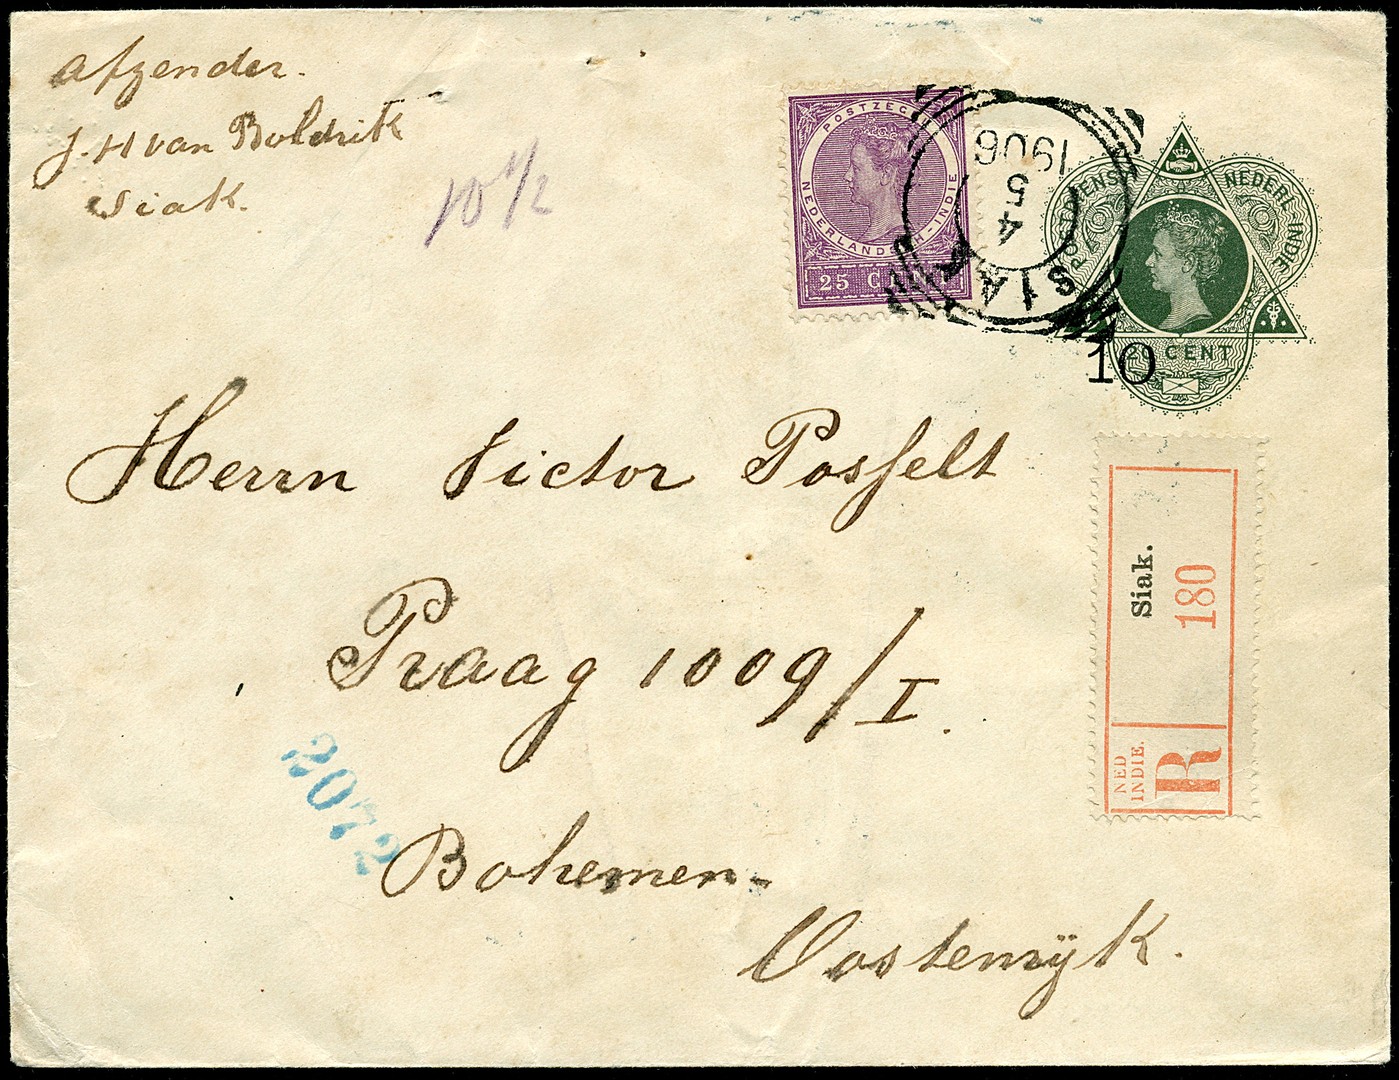 Afzender.
J. H van Boldrik
Siak.
10 1/2
POSTZEGEL
NEDERLANDSCH-INDIE
25 CENT
SIAK
4
5
1906
POSTDIENST
NEDERL. INDIE
20 CENT
10
Herrn Victor Posselt
Praag 1009/I.
Bohemen-
Oostenryk.
2072
Siak.
180
NED
INDIE.
R